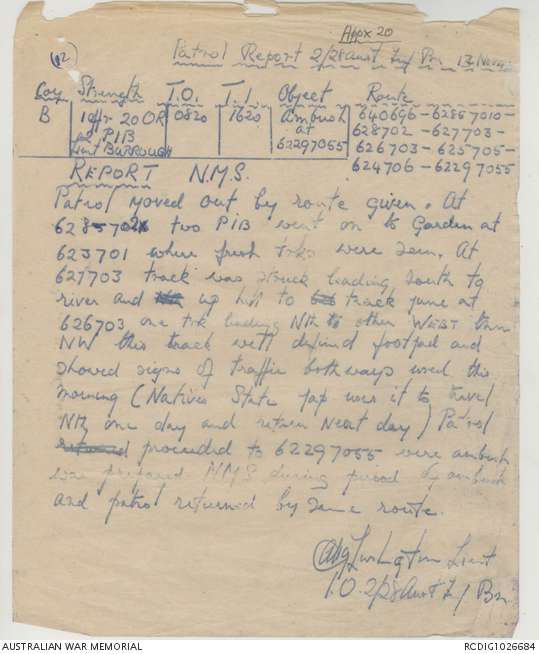 Appx 20
(12)
Patrol Report 2/28 Aust Inf Bn 13 Nov
Coy Strength T.O. T.I. Object Route
B 1 Offr 20 OR 0820 1620 Ambush 640696 - 62857010 -
2 PIB at 628702 - 627703 -
Lieut BURROUGH 62297055 626703 - 625705 -
624706 - 62297055
REPORT N.M.S.
Patrol moved out by route given. At
two PIB went on to Garden at
623701 where fresh trks were seen. At
627703 track was struck leading South to
river and up hill to track junc at
626703 one trk leading Nth to other WEST then
NW this track well defined footpad and
showed signs of traffic both ways used this
morning (Natives State Jap uses it to travel
Nth one day and return Next day) Patrol
returned proceeded to 62297055 were ambush
was prepared N.M.S during period of ambush
and patrol returned by same route.
Lieut
I.O. 2/28 Aust Inf Bn.
AUSTRALIAN WAR MEMORIAL
RCDIG1026684